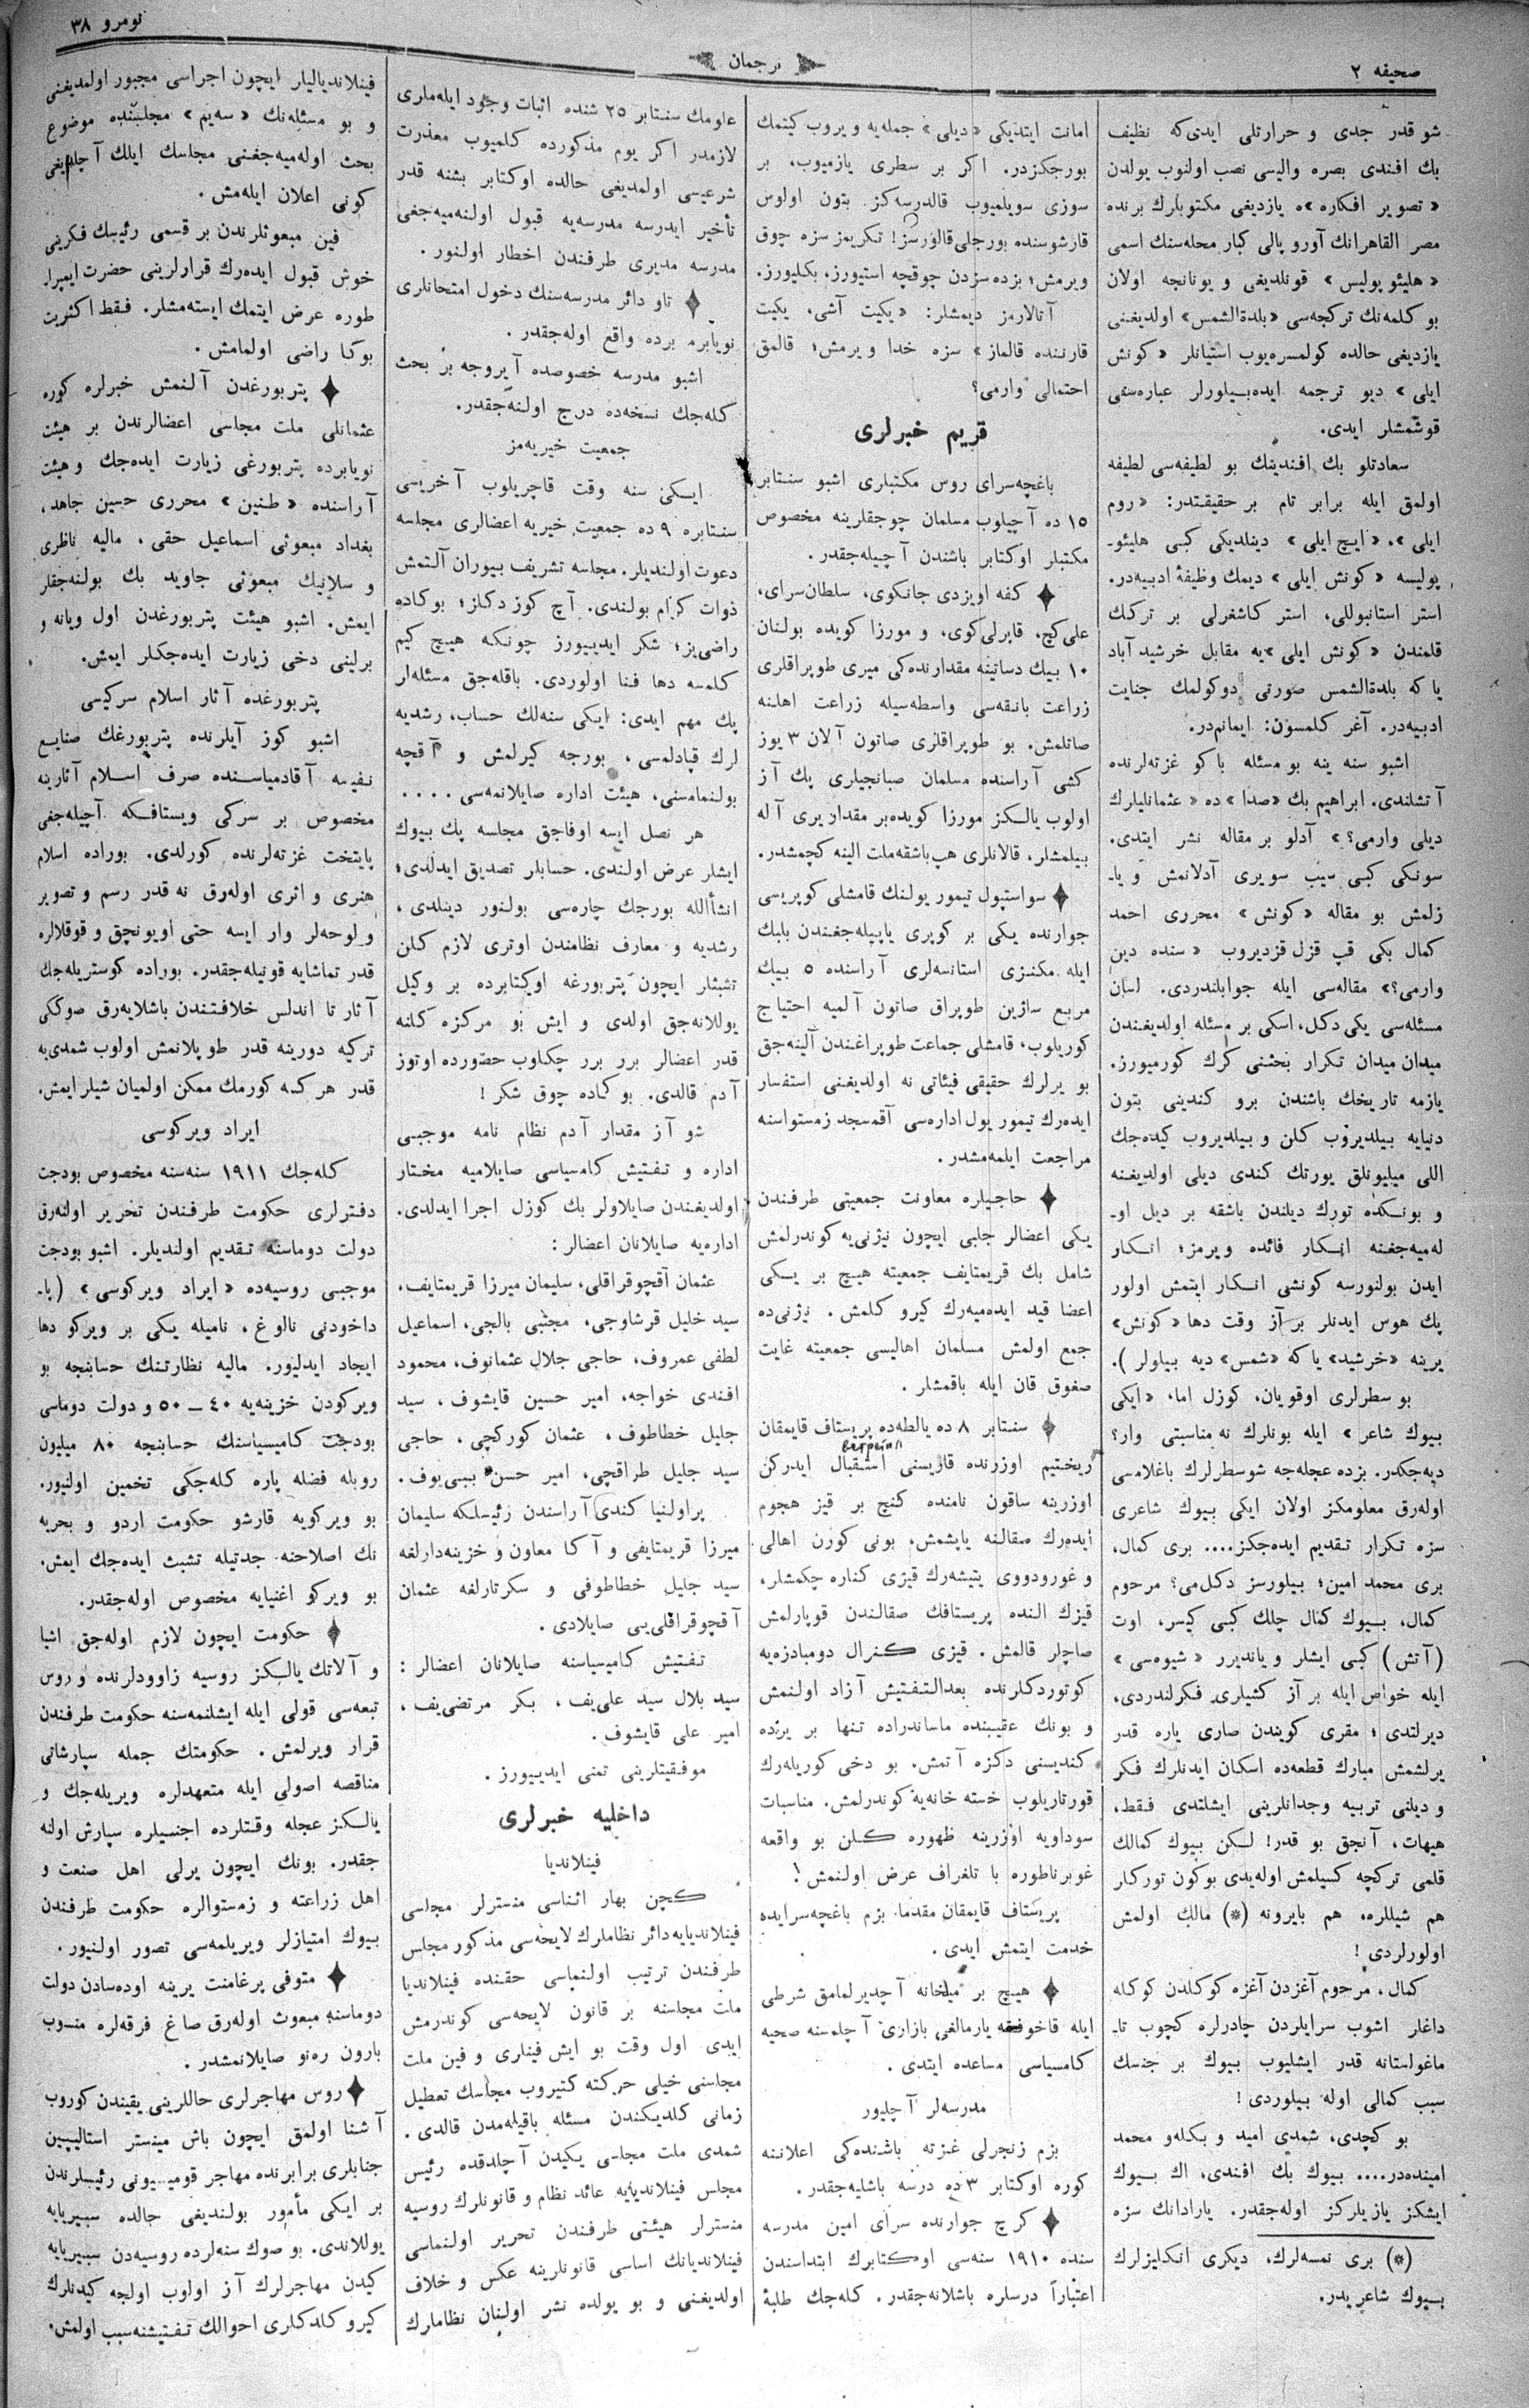 صحیفه ٢
ترجمان
نومرو ٣٨
شو قدر جدی و حرارتلی ایدی‌که نظیف
بك افندی بصره والیسی نصب اولنوب یولدن
«تصویر افكاره»ه یازدیغی مكتوبلرك برنده
مصر القاهرانك آوروپالی كبار محله‌سنك اسمی
«هلیئو پولیس» قونلدیغی و یونانچه اولان
بو كلمه‌نك تركجه‌سی «بلدةالشمس» اولدیغنی
یازدیغی حالده كولمسره‌یوب استیانلر «كونش
ایلی» دیو ترجمه ایده‌بیلورلر عباره‌سنی
قوشمشلر ایدی.
سعادتلو بك افندینك بو لطیفه‌سی لطیفه
اولمق ایله برابر تام بر حقیقتدر: «روم
ایلی»، «ایچ ایلی» دینلدیكی كبی هلیئو-
پولیسه «كونش ایلی» دیمك وظیفهٔ ادبیه‌در.
استر استانبوللی، استر كاشغرلی بر ترك
قلمندن «كونش ایلی»یه مقابل خرشید آباد
یا كه بلدةالشمس صورتی دوكولمك جنایت
ادبیه‌در. آغر كلمسون: ایمانم‌در.
اشبو سنه ینه بو مسئله باكو غزته‌لرنده
آتشلندی. ابراهیم بك «صدا»ده «عثمانلیلرك
دیلی وارمی؟» آدلو بر مقاله نشر ایتدی.
سونكی كبی سیب سویری آدلانمش و یا-
زلمش بو مقاله «كونش» محرری احمد
كمال بكی قپ قزل قزدیروب «سنده دین
وارمی؟» مقاله‌سی ایله جوابلندردی. لسان
مسئله‌سی یكی دكل، اسكی بر مسئله اولدیغندن
میدان میدان تكرار بحثنی كرك كورمیورز.
یازمه تاریخك باشندن برو كندینی بتون
دنیایه بیلدیروب كلن و بیلدیروب كیده‌جك
اللی میلیونلق یورتك كندی دیلی اولدیغنه
و بونكده تورك دیلندن باشقه بر دیل او-
له‌میه‌جغنه انكار فائده ویرمز؛ انكار
ایدن بولنورسه كونشی انكار ایتمش اولور
پك هوس ایدنلر بر آز وقت دها «كونش»
یرینه «خرشید» یا كه «شمس» دیه بیلولر).
بو سطرلری اوقویان، كوزل اما، «ایكی
بیوك شاعر» ایله بونلرك نه مناسبتی وار؟
دیه‌جكدر. بزده عجله‌جه شو سطرلرك باغلامسی
اوله‌رق معلومكز اولان ایكی بیوك شاعری
سزه تكرار تقدیم ایده‌جكز.... بری كمال،
بری محمد امین؛ بیلورسز دكل‌می؟ مرحوم
كمال، بیوك كمال چلك كبی كیسر، اوت
(آتش) كبی ایشلر و یاندیرر «شیوه‌سی»
ایله خواص ایله بر آز كشیلری فكرلندردی،
دیرلتدی؛ مقری كویندن صاری یاره قدر
یرلشمش مبارك قطعه‌ده اسكان ایدنلرك فكر
و دیلنی تربیه و جدانلرینی ایشلتدی فقط،
هیهات، آنجق بو قدر! لكن بیوك كمالك
قلمی تركچه كسیلمش اوله‌یدی بوكون توركلر
هم شیللره، هم بایرونه (*) مالك اولمش
اولورلردی!
كمال، مرحوم آغزدن آغزه كوكلدن كوكله
داغلر اشوب سرایلردن چادرلره كچوب تا-
ماغولستانه قدر ایشلیوب بیوك بر جنسك
سبب كمالی اوله بیلوردی!
بو كچدی، شمدی امید و بكله‌و محمد
امینده‌در.... بیوك بك افندی، اك بیوك
ایشكز یازیلركز اوله‌جقدر. یارادانك سزه
(*) بری نمسه‌لرك، دیگری انكلیزلرك
بیوك شاعریدر.
امانت ایتدیكی «دیلی» جمله‌یه ویروب كیتمك
بورجكزدر. اكر بر سطری یازمیوب، بر
سوزی سویلمیوب قالدرسه‌كز بتون اولوس
قارشوسنده بورجلی قالورسز! تكریمز سزه چوق
ویرمش؛ بزده سزدن چوقچه استیورز، بكلیورز.
آتالارمز دیمشلر: «یكیت آشی، یكیت
قارننده قالماز» سزه خدا ویرمش؛ قالمق
احتمالی وارمی؟
قریم خبرلری
باغچه‌سرای روس مكتبلری اشبو سنتابر
١٥ ده آچیلوب مسلمان چوجقلرینه مخصوص
مكتبلر اوكتابر باشندن آچیله‌جقدر.
كفه اویزدی جانكوی، سلطان‌سرای،
علی‌كچ، قاپرلی‌كوی، و مورزا كویده بولنان
١٠ بیك دساتینه مقدارنده‌كی میری طوپراقلری
زراعت بانقه‌سی واسطه‌سیله زراعت اهلنه
صاتلمش. بو طوپراقلری صاتون آلان ٣ یوز
كشی آراسنده مسلمان صبانجیلری پك آز
اولوب یالكز مورزا كویده‌بر مقدار یری آله
بیلمشلر، قالانلری هپ باشقه ملت الینه كچمشدر.
سواستپول تیمور یولنك قامشلی كوپریسی
جوارنده یكی بر كوپری یاپیله‌جغندن بلبك
ایله مكنزی استانسه‌لری آراسنده ٥ بیك
مربع ساژین طوپراق صاتون آلمیه احتیاج
كوریلوب، قامشلی جماعت طوپراغندن آلینه‌جق
بو یرلرك حقیقی فیئاتی نه اولدیغنی استفسار
ایده‌رك تیمور یول اداره‌سی آقمسجد زمستواسنه
مراجعت ایلمه‌مشدر.
حاجیلره معاونت جمعیتی طرفندن
یكی اعضالر جلبی ایچون نیژنی‌یه كوندرلمش
شامل بك قریمتایف جمعیته هیچ بر یكی
اعضا قید ایده‌میه‌رك كیرو كلمش. نیژنی‌ده
جمع اولمش مسلمان اهالیسی جمعیته غایت
صغوق قان ایله باقمشلر.
سنتابر ٨ ده یالطه‌ده پریستاف قایمقان
ریختیم اوزرنده قاریسنی استقبال ایدركن
اوزرینه ساقون نامنده كنج بر قیز هجوم
ایده‌رك صقالنه یاپشمش، بونی كورن اهالی
و غورودووی یتیشه‌رك قیزی كناره چكمشلر،
قیزك النده پریستافك صقالندن قوپارلمش
صاچلر قالمش. قیزی كنرال دومبادزه‌یه
كوتوردكلرنده بعدالتفتیش آزاد اولنمش
و بونك عقیبنده ماساندراده تنها بر یرده
كندیسنی دكزه آتمش. بو دخی كوریله‌رك
قورتاریلوب خسته خانه‌یه كوندرلمش. مناسبات
سوداویه اوزرینه ظهوره كلن بو واقعه
غوبرناطوره با تلغراف عرض اولنمش!
پریستاف قایمقان مقدما بزم باغچه‌سرایده
خدمت ایتمش ایدی.
هیچ بر میخانه آچدیرلمامق شرطی
ایله یارمالغی بازاری آچلمسنه صحیه
كامسیاسی مساعده ایتدی.
مدرسه‌لر آچلیور
بزم زنجرلی غزته باشنده‌كی اعلاننه
كوره اوكتابر ٣ ده درسه باشلیه‌جقدر.
كرچ جوارنده سرای امین مدرسه
سنده ١٩١٠ سنه‌سی اوكتابرك ابتداسندن
اعتباراً درسلره باشلانه‌جقدر. كله‌جك طلبهٔ
علومك سنتابر ٢٥ شنده اثبات وجود ایله‌ملری
لازمدر اكر یوم مذكورده كلمیوب معذرت
شرعیسی اولمدیغی حالده اوكتابر بشنه قدر
تأخیر ایدرسه مدرسه‌یه قبول اولنه‌میه‌جغی
مدرسه مدیری طرفندن اخطار اولنور.
تاو دائر مدرسه‌سنك دخول امتحانلری
نویابرم برده واقع اوله‌جقدر.
اشبو مدرسه خصوصده آیروجه بر بحث
كله‌جك نسخه‌ده درج اولنه‌جقدر.
جمعیت خیریه‌مز
ایكی سنه وقت قاچریلوب آخریسی
سنتابره ٩ ده جمعیت خیریه اعضالری مجلسه
دعوت اولندیلر. مجلسه تشریف بیوران آلتمش
ذوات كرام بولندی. آچ كوز دكلز؛ بوكاده
راضی‌یز؛ شكر ایدییورز چونكه هیچ كیم
كلمسه دها فنا اولوردی. باقله‌جق مسئله‌لر
پك مهم ایدی: ایكی سنه‌لك حساب، رشدیه
لرك قپادلمسی، بورجه كیرلمش و آقچه
بولنمامسنی، هیئت اداره صایلانمه‌سی....
هر نصل ایسه اوفاجق مجلسه پك بیوك
ایشلر عرض اولندی. حسابلر تصدیق ایدلدی؛
انشأالله بورجك چاره‌سی بولنور دینلدی،
رشدیه و معارف نظامندن اوتری لازم كلن
تشبثلر ایچون پتربورغه اوكتابرده بر وكیل
یوللانه‌جق اولدی و ایش بو مركزه كلنه
قدر اعضالر برر برر چكلوب حضورده اوتوز
آدم قالدی. بوكاده چوق شكر!
شو آز مقدار آدم نظام نامه موجبی
اداره و تفتیش كامسیاسی صایلامیه مختار
اولدیغندن صایلاولر بك كوزل اجرا ایدلدی.
اداره‌یه صایلانان اعضالر:
عثمان آقچوقراقلی، سلیمان میرزا قریمتایف،
سید خلیل قرشاوجی، مجتبی بالجی، اسماعیل
لطفی عمروف، حاجی جلال عثمانوف، محمود
افندی خواجه، امیر حسین قایشوف، سید
جلیل خطاطوف، عثمان كوركچی، حاجی
سید جلیل طراقچی، امیر حسن بیبی‌یوف.
پراولنیا كندی آراسندن رئیسلكه سلیمان
میرزا قریمتایفی و آكا معاون و خزینه‌دارلغه
سید جلیل خطاطوفی و سكرتارلغه عثمان
آقچوقراقلی‌یی صایلادی.
تفتیش كامیسیاسنه صایلانان اعضالر:
سید بلال سید علی‌یف، بكر مرتضی‌یف،
امیر علی قایشوف.
موفقیتلرینی تمنی ایدییورز.
داخلیه خبرلری
فینلاندیا
كچن بهار اثناسی منسترلر مجلسی
فینلاندیایه دائر نظاملرك لایحه‌سی مذكور مجلس
طرفندن ترتیب اولنماسی حقنده فینلاندیا
ملت مجلسنه بر قانون لایحه‌سی كوندرمش
ایدی اول وقت بو ایش فینلری و فین ملت
مجلسنی خیلی حركته كتیروب مجلسك تعطیل
زمانی كلدیكندن مسئله باقیله‌مدن قالدی.
شمدی ملت مجلسی یكیدن آچلدقده رئیس
مجلس فینلاندیایه عائد نظام و قانونلرك روسیه
منسترلر هیئتی طرفندن تحریر اولنماسی
فینلاندیانك اساسی قانونلرینه عكس و خلاف
اولدیغنی و بو یولده نشر اولنان نظاملرك
فینلاندیالیلر ایچون اجراسی مجبور اولمدیغنی
و بو مسئله‌نك «سه‌یم» مجلسنده موضوع
بحث اوله‌میه‌جغنی مجلسك ایلك آچلدیغی
كونی اعلان ایله‌مش.
فین مبعوثلرندن بر قسمی رئیسك فكرینی
خوش قبول ایده‌رك قرارلرینی حضرت ایمپرا-
طوره عرض ایتمك ایسته‌مشلر. فقط اكثریت
بوكا راضی اولمامش.
پتربورغدن آلنمش خبرلره كوره
عثمانلی ملت مجلسی اعضالرندن بر هیئت
نویابرده پتربورغی زیارت ایده‌جك و هیئت
آراسنده «طنین» محرری حسین جاهد،
بغداد مبعوثی اسماعیل حقی، مالیه ناظری
و سلانیك مبعوثی جاوید بك بولنه‌جقلر
ایمش. اشبو هیئت پتربورغدن اول ویانه و
برلینی دخی زیارت ایده‌جكلر ایمش.
پتربورغده آثار اسلام سركیسی
اشبو كوز آیلرنده پتربورغك صنایع
نفیسه آقادمیاسنده صرف اسلام آثارینه
مخصوص بر سركی ویستافكه آچیله‌جغی
پایتخت غزته‌لرنده كورلدی. بوراده اسلام
هنری و اثری اوله‌رق نه قدر رسم و تصویر
و لوحه‌لر وار ایسه حتی اویونجق و قوقلالره
قدر تماشایه قونیله‌جقدر. بوراده كوستریله‌جك
آثار تا اندلس خلافتندن باشلایه‌رق صوككی
تركیه دورینه قدر طوپلانمش اولوب شمدی‌یه
قدر هركسه كورمك ممكن اولمیان شیلر ایمش.
ایراد ویركوسی
كله‌جك ١٩١١ سنه‌سنه مخصوص بودجت
دفترلری حكومت طرفندن تحریر اولنه‌رق
دولت دوماسنه تقدیم اولندیلر. اشبو بودجت
موجبی روسیه‌ده «ایراد ویركوسی» (پا-
داخودنی نالوغ، نامیله یكی بر ویركو دها
ایجاد ایدلیور. مالیه نظارتنك حسابنجه بو
ویركودن خزینه‌یه ٤٠—٥٠ و دولت دوماسی
بودجت كامیسیاسنك حسابنجه ٨٠ میلیون
روبله فضله پاره كله‌جكی تخمین اولنیور.
بو ویركویه قارشو حكومت اردو و بحریه
نك اصلاحنه جدتیله تشبث ایده‌جك ایمش.
بو ویركو اغنیایه مخصوص اوله‌جقدر.
حكومت ایچون لازم اوله‌جق اشیا
و آلاتك یالكز روسیه زاوودلرنده و روس
تبعه‌سی قولی ایله ایشلنمه‌سنه حكومت طرفندن
قرار ویرلمش. حكومتك جمله سپارشاتی
مناقصه اصولی ایله متعهدلره ویریله‌جك و
یالكز عجله وقتلرده اجنبیلره سپارش اولنه
جقدر. بونك ایچون یرلی اهل صنعت و
اهل زراعته و زمستوالره حكومت طرفندن
بیوك امتیازلر ویریلمه‌سی تصور اولنیور.
متوفی پرغامنت یرینه اوده‌سادن دولت
دوماسنه مبعوث اوله‌رق صاغ فرقه‌لره منسوب
بارون ره‌نو صایلانمشدر.
روس مهاجرلری حاللرینی یقیندن كوروب
آشنا اولمق ایچون باش مینستر استالیپین
جنابلری برابرنده مهاجر قومیسیونی رئیسلرندن
بر ایكی مأمور بولندیغی حالده سیبریایه
یوللاندی. بو صوك سنه‌لرده روسیه‌دن سیبریایه
كیدن مهاجرلرك آز اولوب اولجه كیدنلرك
كیرو كلدكلری احوالك تفتیشنه سبب اولمش.